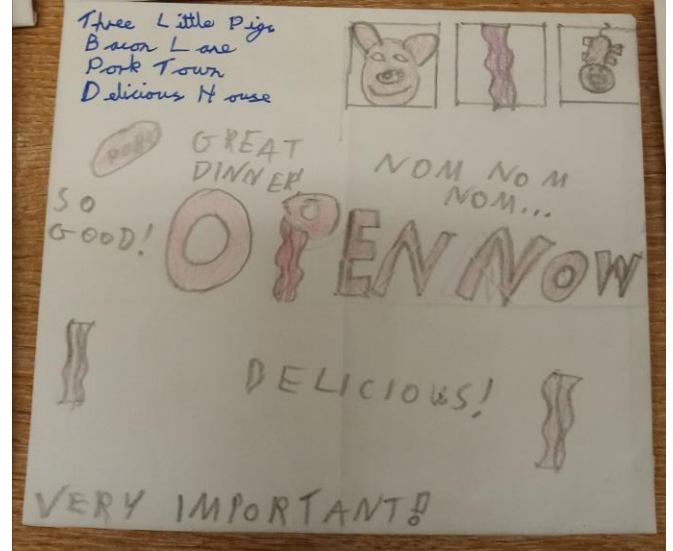 Three Little Pigs
Bacon Lane
Pork Town
Delicious House
PORK
GREAT
DINNER!
NOM NOM
NOM...
SO
GOOD!
OPEN NOW
DELICIOUS!
VERY IMPORTANT!